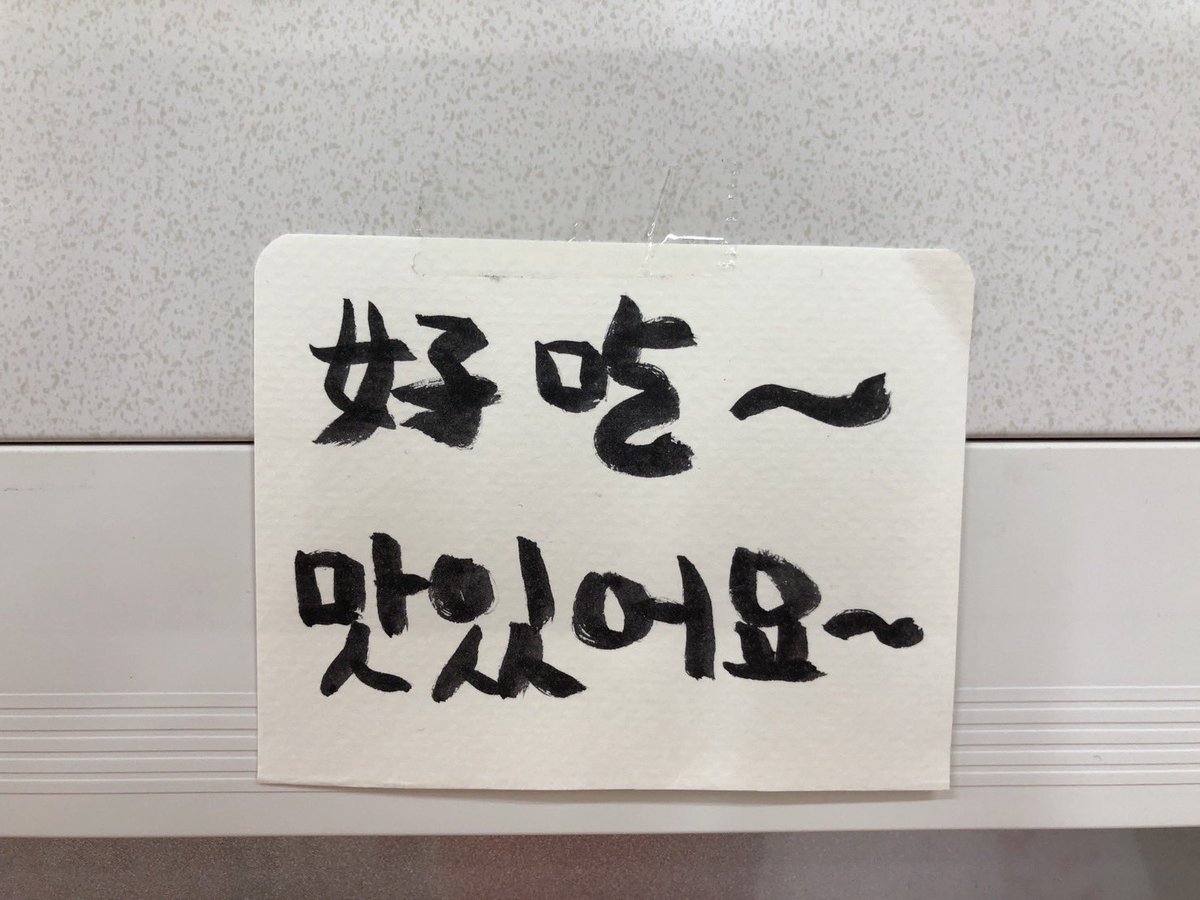 好吃~
맛있어요~